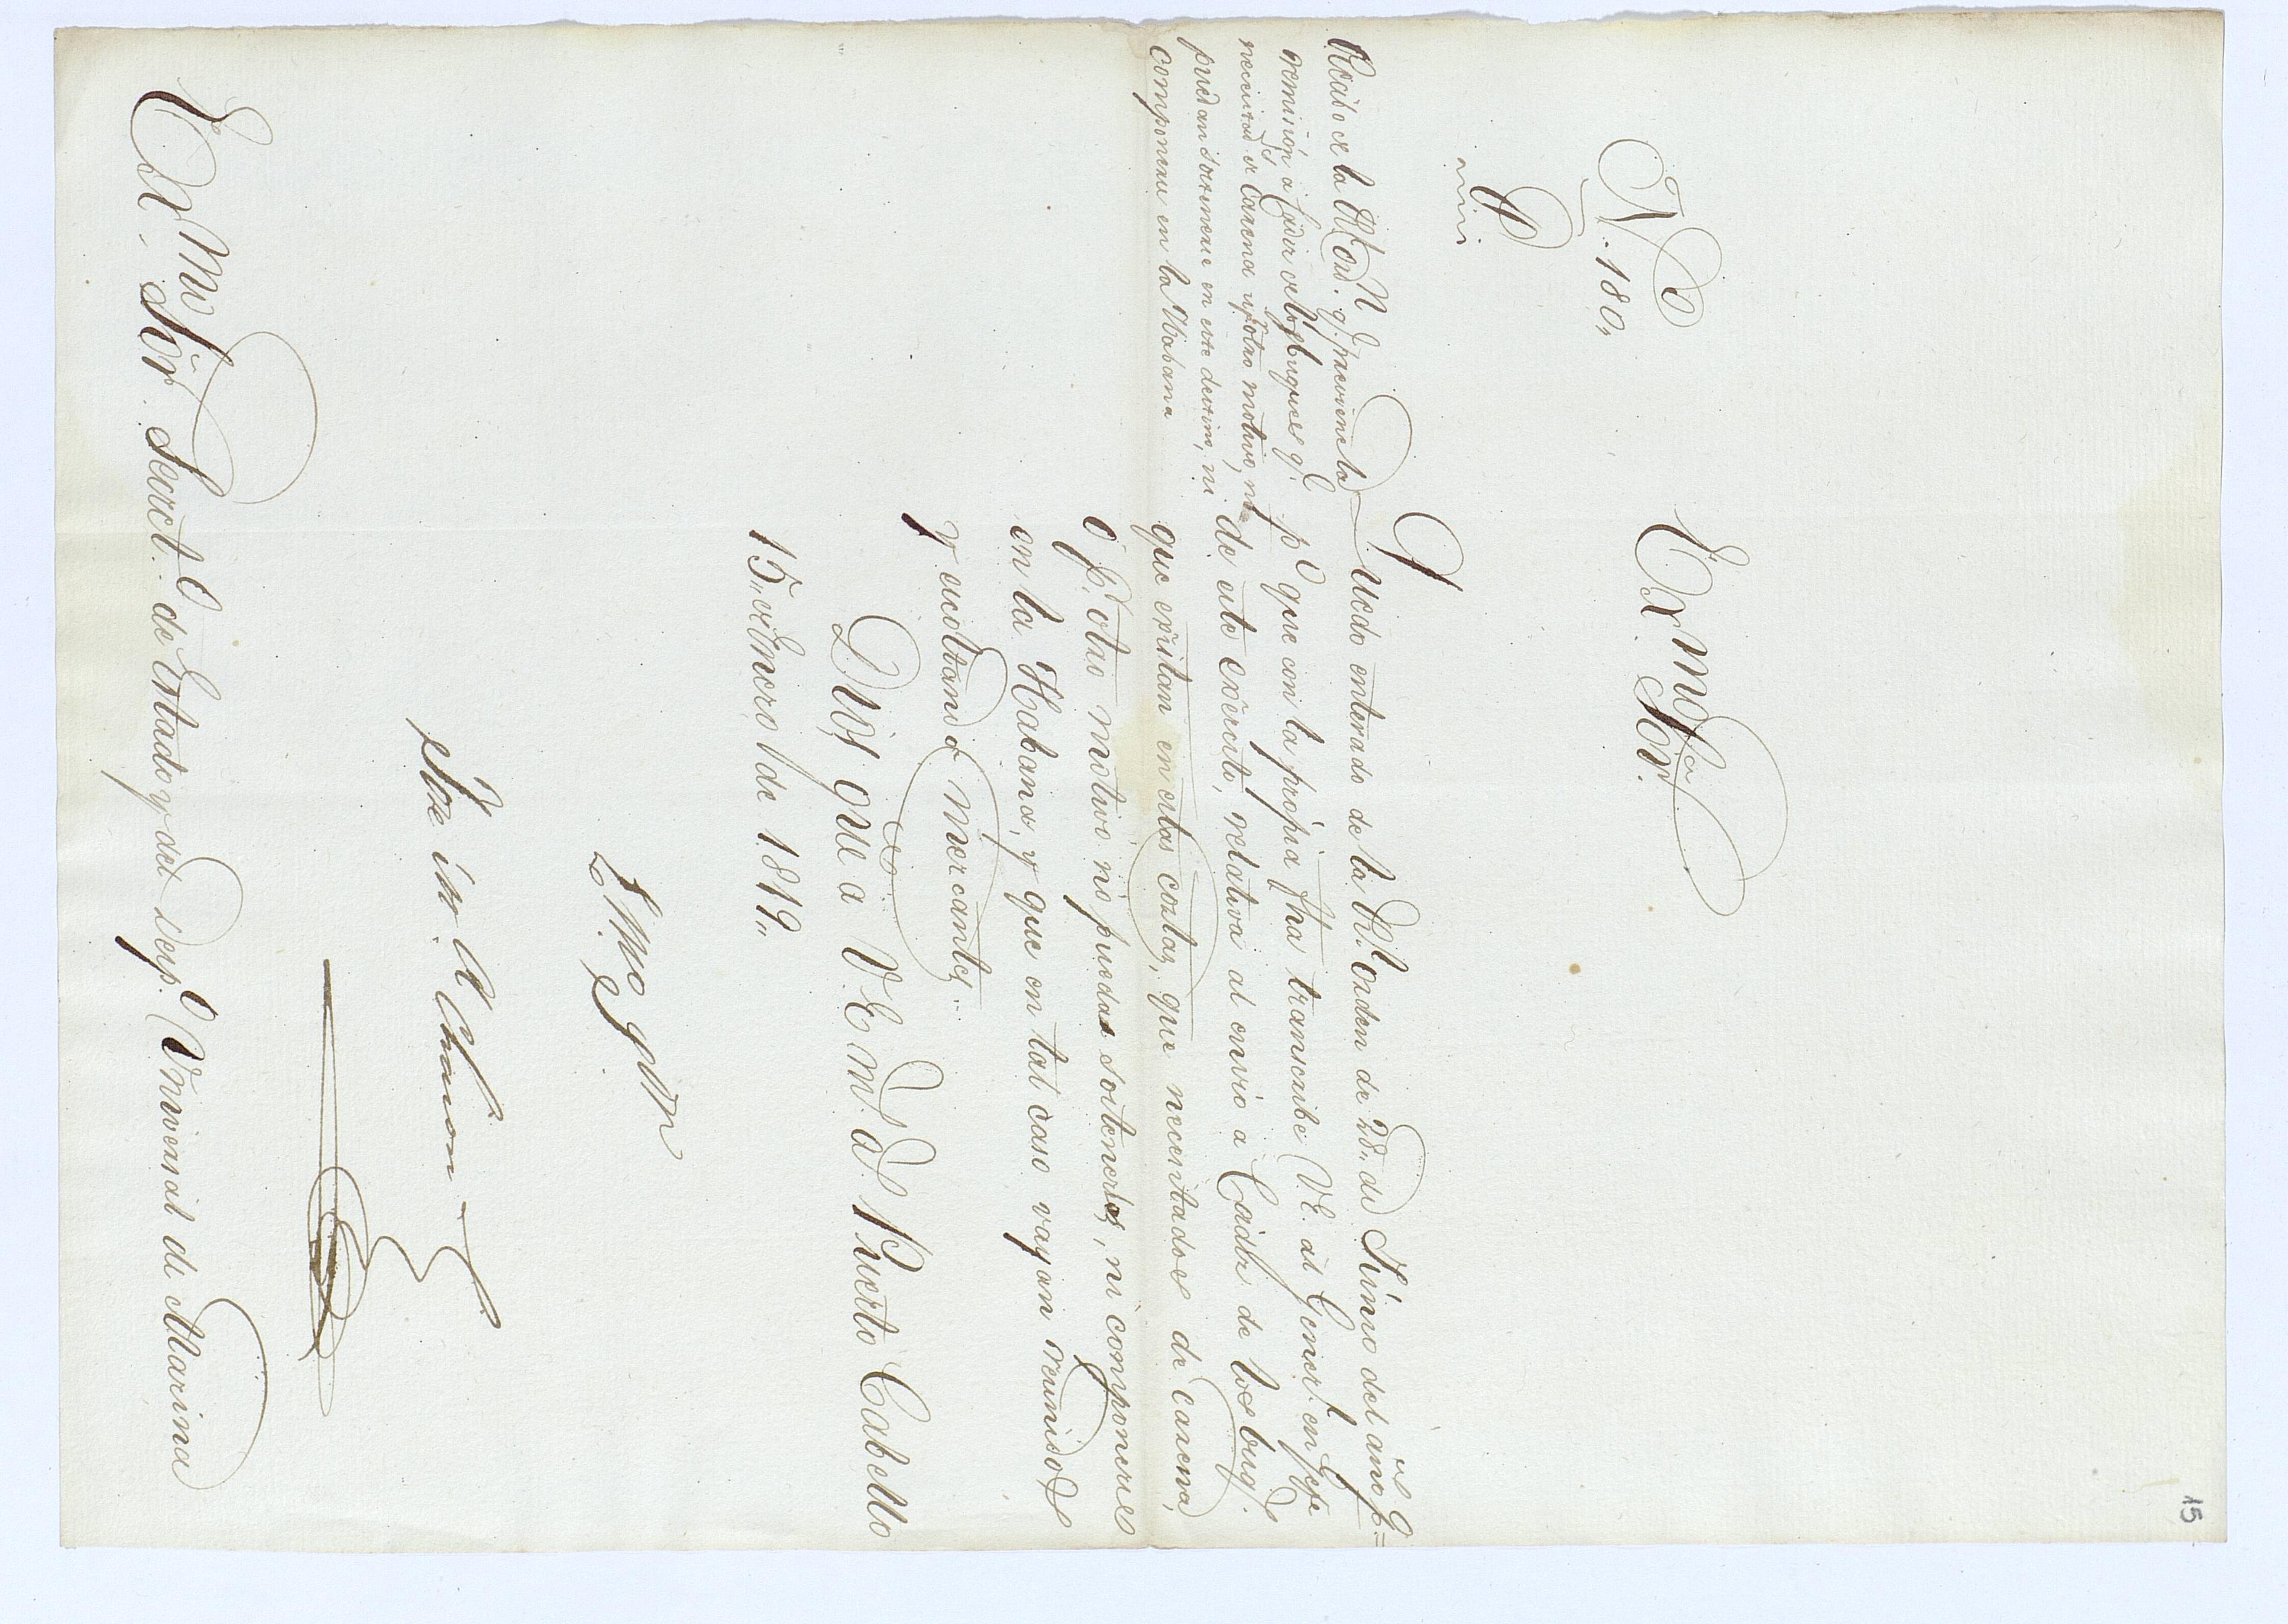 15
N.º 180,,
P.
Exmo. Sōr.
Recibo de la Rl. Ord. q.e previene la
remision a Cadiz de los buques q.e
necesitad.s de carena u otro motivo, no
puedan sostenerse en este destino, ni
componerse en la Habana
Quedo enterado de la Rl. Orden de 28,, de
del año p.º
p.º que con la propia fha transcribe V.E. al General en Gefe
de este exército, relativa al envio a Cadiz de los buq.s
que existan en estas costas, que necesitados de carena,
ó p.r otro motivo no puedan sostenerse, ni componerse
en la Habana, y que en tal caso vayan reunidos
y escoltando mercantes.
Dios gue a V.E. m.s a.s Puerto Cabello
15,, de Enero de 1.819,,
Exmo. Sōr. Secret.º de Estado y del Desp.º Universal de Marina